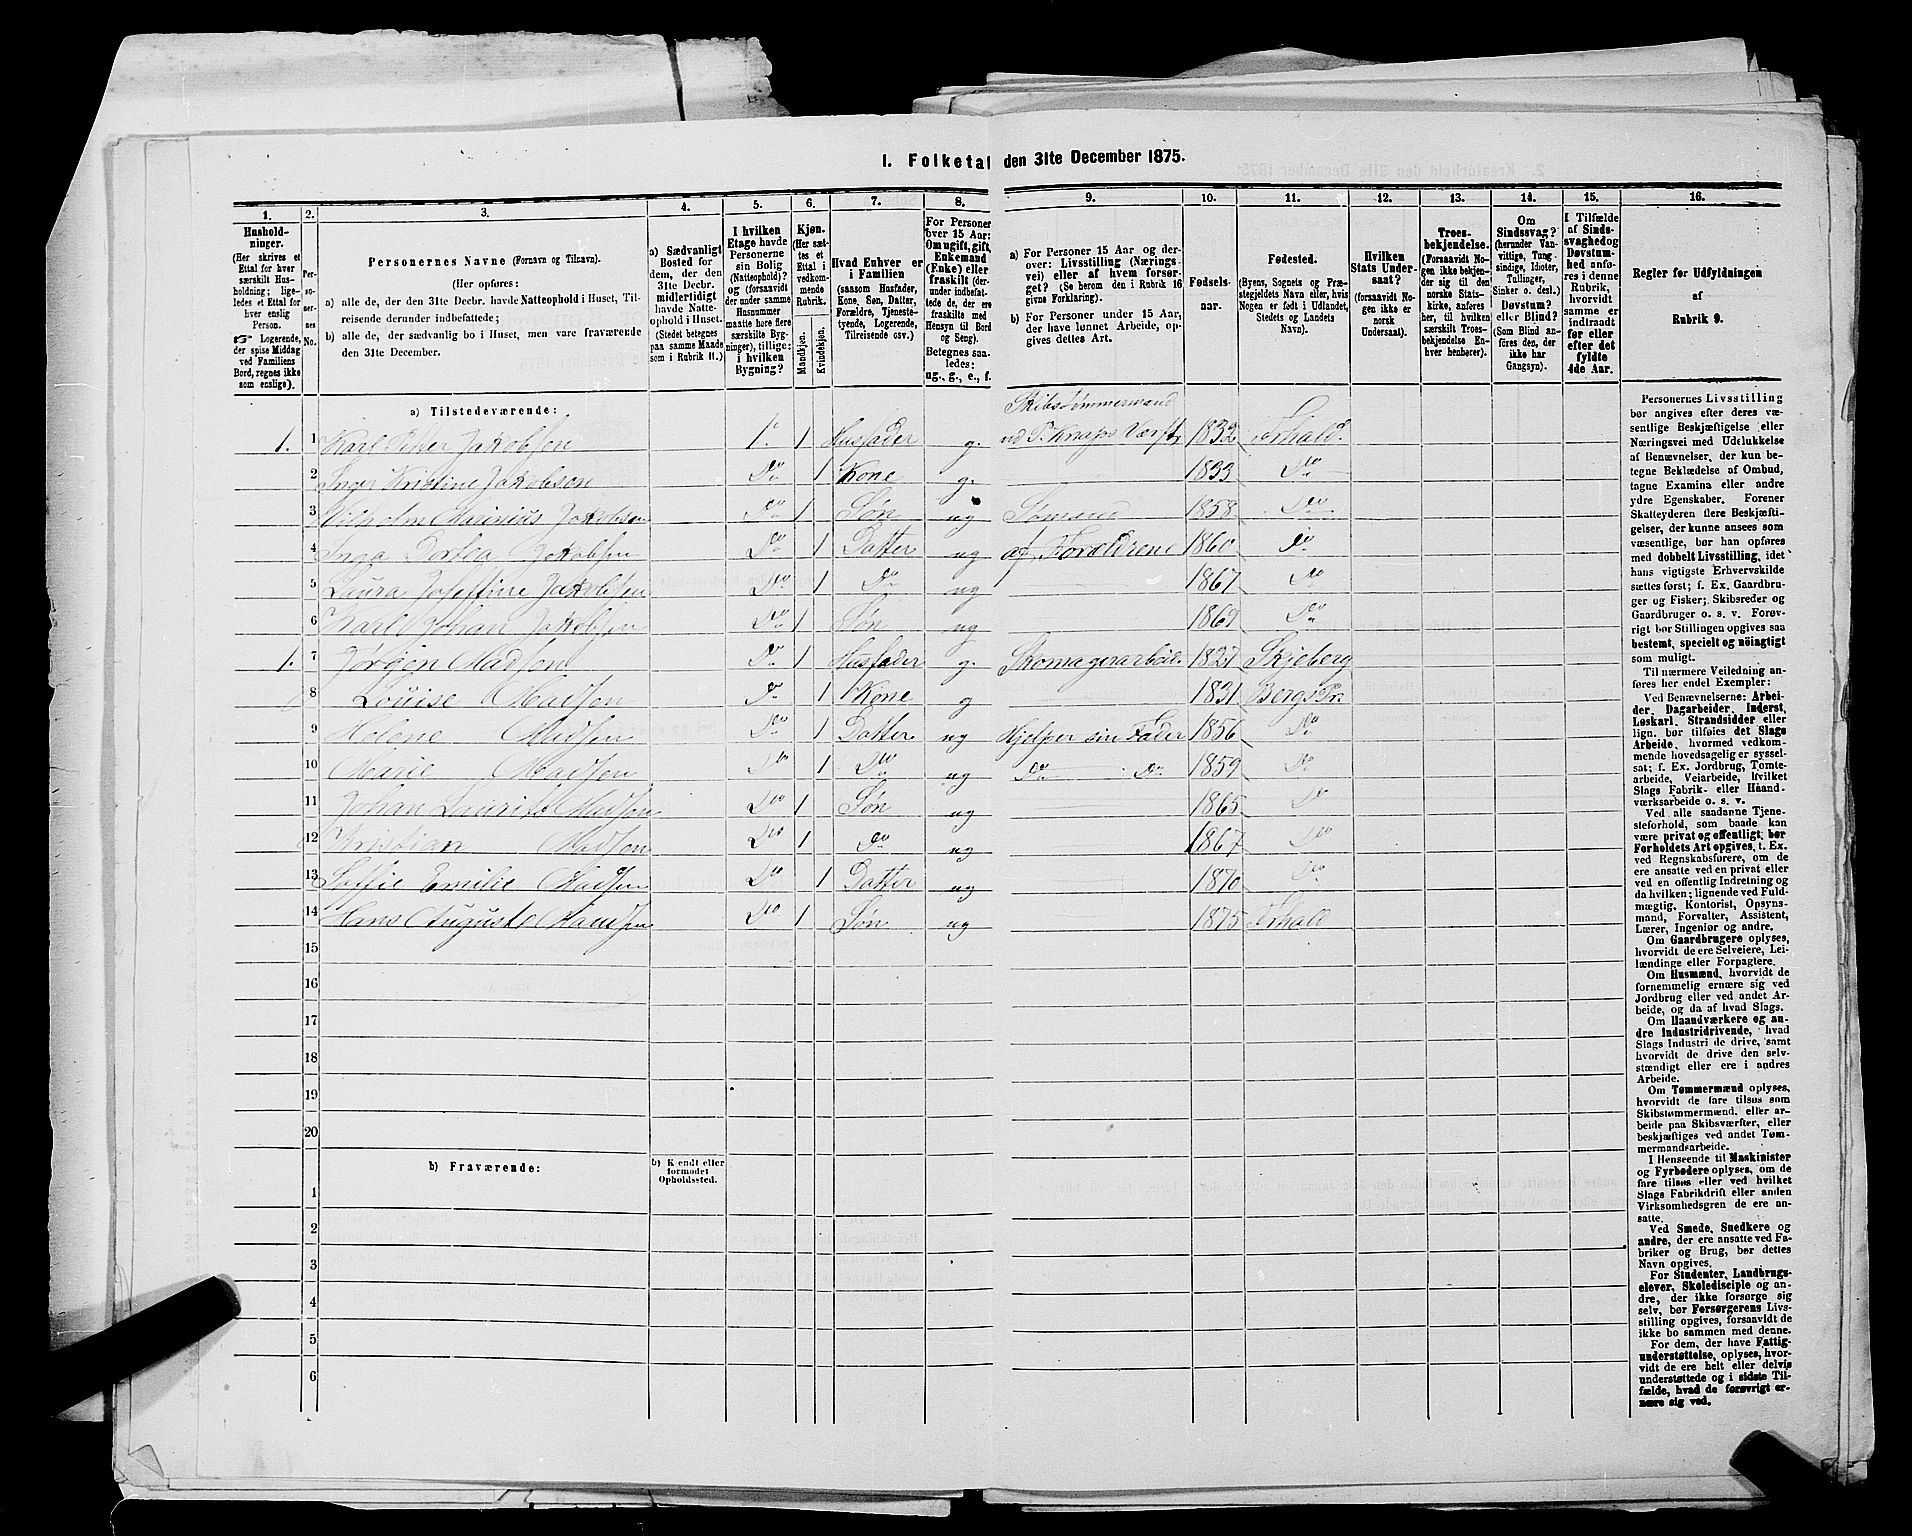 I. Folketal den 31te December 1875.
1. 2. 3. 4. 5. 6. 7. 8. 9. 10. 11. 12. 13. 14. 15. 16.
Husholdninger.
(Her skrives et
Ettal for hver
særskilt Husholdning; ligeledes et Ettal for
hver enslig
Person.
☞ Logerende,
der spise Middag
ved Familiens
Bord, regnes ikke
som enslige).
Personernes No.
Personernes Navne (Fornavn og Tilnavn).
(Her opføres:
a) alle de, der den 31te Decbr. havde Natteophold i Huset, Tilreisende derunder indbefattede;
b) alle de, der sædvanlig bo i Huset, men vare fraværende
den 31te December.
a) Sædvanligt
Bosted for
dem, der den
31te Decbr.
midlertidigt
havde Natteophold i Huset.
(Stedet betegnes
paa samme Maade
som i Rubrik 11.)
I hvilken
Etage havde
Personerne
sin Bolig
(Natteophold)?
og (forsaavidt
der under samme
Husnummer
maatte høre flere
særskilte Bygninger), tillige:
i hvilken
Bygning?
Kjøn.
(Her sættes et
Ettal i
vedkommende
Rubrik.
Mandkjøn.
Kvindekjøn.
Hvad Enhver er
i Familien
(saasom Husfader,
Kone, Søn, Datter,
Forældre, Tjenestetyende, Logerende,
Tilreisende osv.)
For Personer
over 15 Aar:
Om ugift, gift,
Enkemand
(Enke) eller
fraskilt (derunder indbefattede de, der ere
fraskilte med
Hensyn til Bord
og Seng).
Betegnes saaledes:
ug., g., e., f.
a) For Personer 15 Aar og derover: Livsstilling (Næringsvei) eller af hvem forsørget? (Se herom den i Rubrik 16
givne Forklaring).
b) For Personer under 15 Aar,
der have lønnet Arbeide, opgives dettes Art.
Fødselsaar.
Fødested.
(Byens, Sognets og Præstegjeldets Navn eller, hvis
Nogen er født i Udlandet,
Stedets og Landets
Navn).
Hvilken
Stats Undersaat?
(forsaavidt Nogen ikke er
norsk
Undersaat).
Troesbekjendelse.
(Forsaavidt Nogen ikke bekjender sig til den
norske Statskirke, anføres
her, til hvilken
særskilt Troesbekjendelse Enhver henhører).
Om
Sindssvag?
(herunder Vanvittige, Tungsindige, Idioter,
Tullinger,
Sinker o. desl.)
Døvstum?
eller Blind?
(Som Blind anføres den, der
ikke har
Gangsyn).
I Tilfælde
af Sindssvaghed og
Døvstumhed anføres i denne
Rubrik,
hvorvidt
samme er
indtraadt
før eller
efter det
fyldte
4de Aar.
Regler for Udfyldningen
af
Rubrik 9.
a) Tilstedeværende:
Skibstømmermand
1. 1 Karl Petter Jakobsen 1. 1 Husfader g. ved P. Knaps Værft 1832 Torhald.
2 Inger Kristine Jakobsen Do 1 Kone g. 1833 Do
3 Vilholm Marinius Jakobsen Do 1 Søn ug Sømand 1858 Do
4 Inga Dortea Jakobsen Do 1 Datter ug af Forældrene 1860 Do
5 Laura Josefine Jakobsen Do 1 Do ug 1867 Do
6 Karl Johan Jakobsen Do 1 Søn ug 1869 Do
1. 7 Jørgen Madsen Do 1 Husfader g. Skomagerarbeid. 1827 Skjeberg
8 Louise Madsen Do 1 Kone g 1831 Bergs Pr.
9 Helene Madsen Do 1 Datter ug Hjelper sin Fader 1856 Do
10 Marie Madsen Do 1 Do ug Do Do 1859 Do
11 Johan Laurits Madsen Do 1 Søn ug 1865 Do
12 Kristian Madsen Do 1 Do ug 1867 Do
13 Soffie Emilie Madsen Do 1 Datter ug 1870 Do
14 Hans Auguste Madsen Do 1 Søn ug 1875 Torhald
15
16
17
18
19
20
b) Fraværende:
b) Kjendt eller
formodet
Opholdssted.
1
2
3
4
5
6
Personernes Livsstilling
bør angives efter deres væsentlige Beskjæftigelse eller
Næringsvei med Udelukkelse
af Benævnelser, der kun betegne Beklædelse af Ombud,
tagne Examina eller andre
ydre Egenskaber. Forener
Skatteyderen flere Beskjæftigelser, der kunne ansees som
væsentlige, bør han opføres
med dobbelt Livsstilling, idet
hans vigtigste Erhvervskilde
sættes først; f. Ex. Gaardbruger og Fisker; Skibsreder og
Gaardbruger o. s. v. Forøvrigt bør Stillingen opgives saa
bestemt, specielt og nøiagtigt
som muligt.
Til nærmere Veiledning anføres her endel Exempler:
Ved Benævnelserne: Arbeider, Dagarbeider, Inderst,
Løskarl, Strandsidder eller
lign. bør tilføies det Slags
Arbeide, hvormed vedkommende hovedsagelig er sysselsat; f. Ex. Jordbrug, Tomtearbeide, Veiarbeide, hvilket
Slags Fabrik- eller Haandværksarbeide o. s. v.
Ved alle saadanne Tjenesteforhold, som baade kan
være privat og offentligt, bør
Forholdets Art opgives, f. Ex.
ved Regnskabsførere, om de
ere ansatte ved en privat eller
ved en offentlig Indretning og
da hvilken; lignende ved Fuldmægtig, Kontorist, Opsynsmand, Forvalter, Assistent,
Lærer, Ingeniør og andre.
Om Gaardbrugere oplyses,
hvorvidt de ere Selveiere, Leilændinge eller Forpagtere.
Om Husmænd, hvorvidt de
fornemmelig ernære sig ved
Jordbrug eller ved andet Arbeide, og da af hvad Slags.
Om Haandværkere og andre Industridrivende, hvad
Slags Industri de drive, samt
hvorvidt de drive den selvstændigt eller ere i andres
Arbeide.
Om Tømmermænd oplyses,
hvorvidt de fare tilsøs som
Skibstømmermænd, eller arbeide paa Skibsværfter, eller
beskjæftiges ved andet Tømmermandsarbeide.
I Henseende til Maskinister
og Fyrbødere oplyses, om de
fare tilsøs eller ved hvilket
Slags Fabrikdrift eller anden
Virksomhedsgren de ere ansatte.
Ved Smede, Snedkere og
andre, der ere ansatte ved Fabriker og Brug, bør dettes
Navn opgives.
For Studenter, Landbrugselever, Skoledisciple og andre, der ikke forsørge sig
selv, bør Forsørgerens Livsstilling opgives, forsaavidt de
ikke bo sammen med denne.
For dem, der have Fattigunderstøttelse, oplyses, hvorvidt de ere helt eller delvis
understøttede og i sidste Tilfælde, hvad de forøvrigt ernære sig ved.